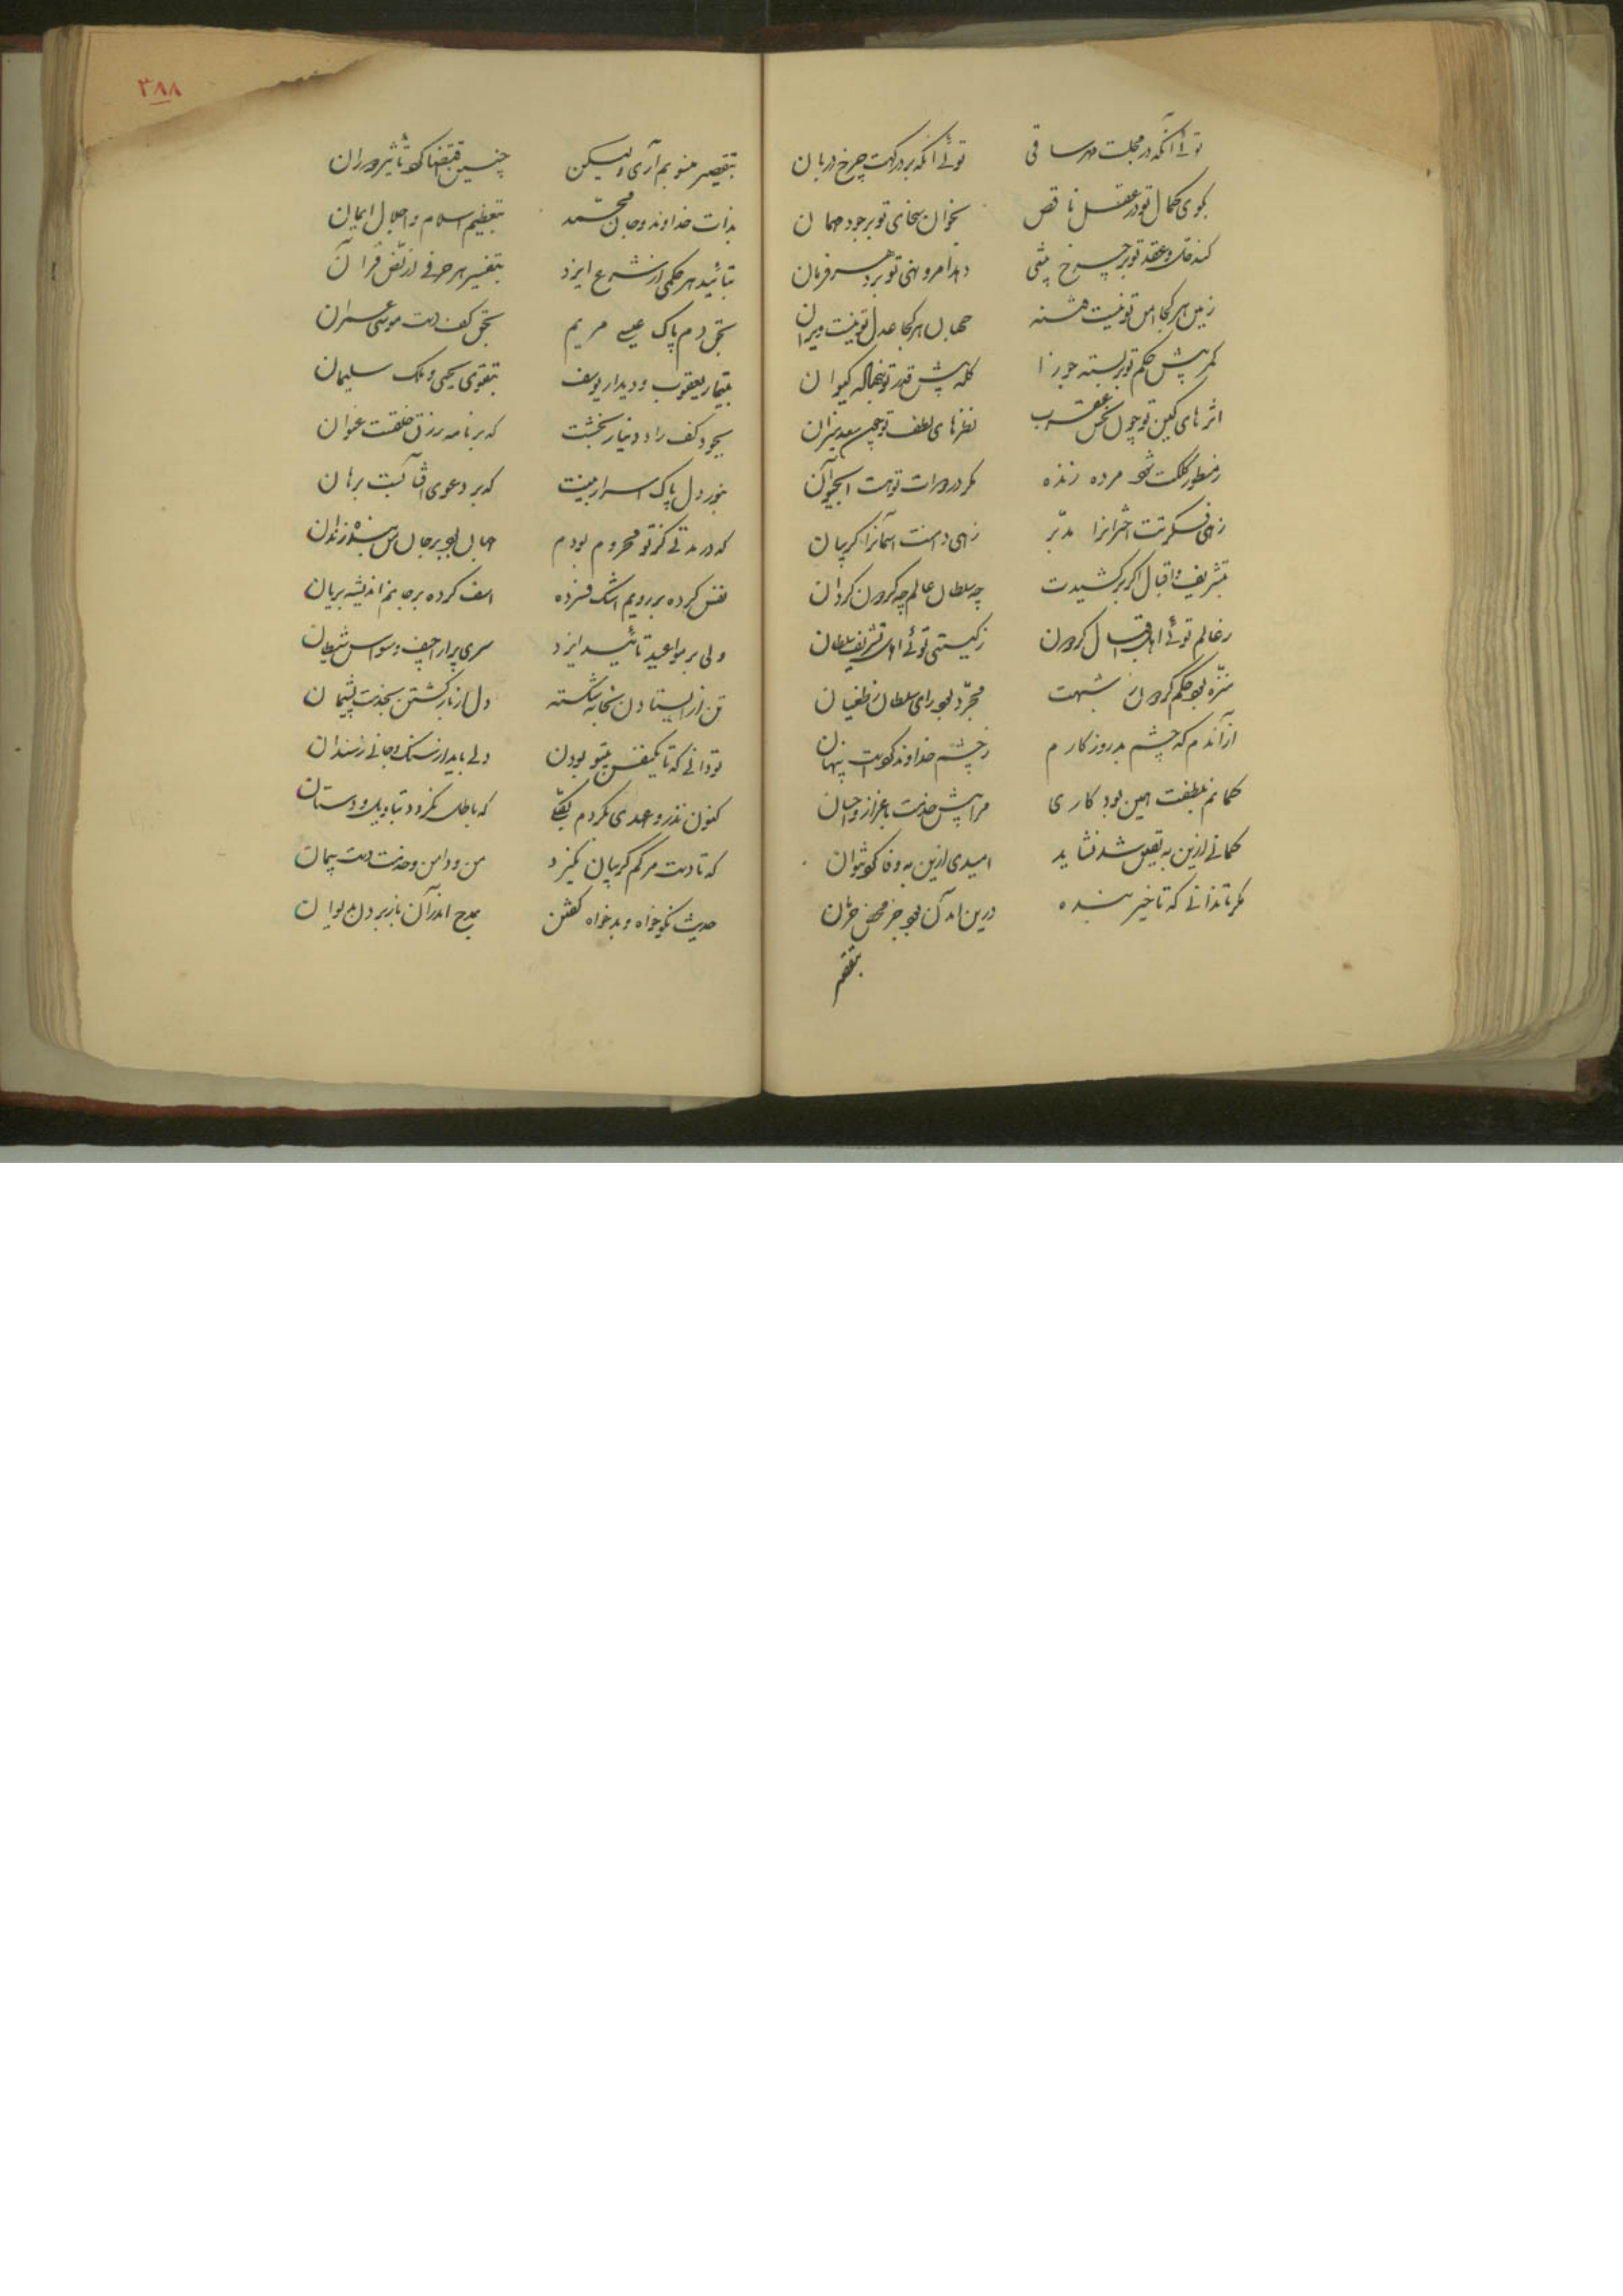 توئی آنکه در مجلست مهر ساقی    توئی آنکه بر درکهت چرخ دربان
بکوی کمال تو در عقل ناقص    بخوان سخای تو بر جود مهمان
کند حل و عقد تو بر چرخ پیشی    دهد امر و نهی تو بر دهر فرمان
زمین هر کجا امن تو نیست فتنه    جهان هر کجا عدل تو نیست ویران
کمر پیش حکم تو بربسته جوزا    کله پیش قدر تو بنهاده کیوان
اثرهای کین تو چون نحس عقرب    نظرهای لطف تو چون سعد میزان
ز سطور کلکت شود مرده زنده    مگر در دوات تو هست آب حیوان
زهی فکرتت اخترانرا مدبر    زهی دامنت آسمانرا کریبان
بتشریف و اقبال اکر برکشیدت    چه سلطان عالم چه کردون کردان
ز عالم توئی اهل اقبال کردون    ز کیتی توئی اهل تشریف سلطان
منزه بود حکم کردون ز شبهت    مجرد بود رای سلطان ز طغیان
از آندم که چشم بد روزکارم    ز چشم خداوند کویت پنهان
کمانم بلطفت همین بود کاری    مرا پیش خدمت باعزاز و احسان
کمانی ازین به یقین شد نشاید    امیدی ازین به وفا کو نتوان
مکر تا ندانی که تاخیر بنده    درین آمدن بود جز محض خذلان
بتقصیر
۳۸۸
بتقصیر منسوبم آری ولیکن    چنین اقتضا کرد تاثیر دوران
بذات خداوند و جان محمد    بتعظیم اسلام و اجلال ایمان
بتائید هر حکمی از شرع ایزد    بتفسیر هر حرفی از نص قرآن
بحق دم پاک عیسی مریم    بحق کف دست موسی عمران
بتیمار یعقوب و دیدار یوسف    بتقوی یحیی و ملک سلیمان
بجود کف راد دینار بخشت    که بر نامه رزق خلقست عنوان
بنور دل پاک اسرار بینت    که بر دعوی آفتابست برهان
که در مدتی کز تو محروم بودم    جهان بود بر جان من بنده زندان
نفس کرده بر رویم اشک فسرده    اسف کرده بر جانم اندیشه بریان
ولی بر مواعید تائید ایزد    سری پر اراجیف و وسواس شیطان
تن از ایستادن بخانه شکسته    دل از باز کشتن بخدمت پشیمان
تو دانی که تا یکنفس بیتو بودن    دلی باید از سنک و جانی ز سندان
کنون نذر و عهدی بکردم    که باطل نکردد بتاویل و دستان
که تا دست مرکم کریبان نکیرد    من و دامن و خدمت دست پیمان
حدیث نکوخواه و بدخواه کفتن    بمدح اندر آن باز بردن بدیوان